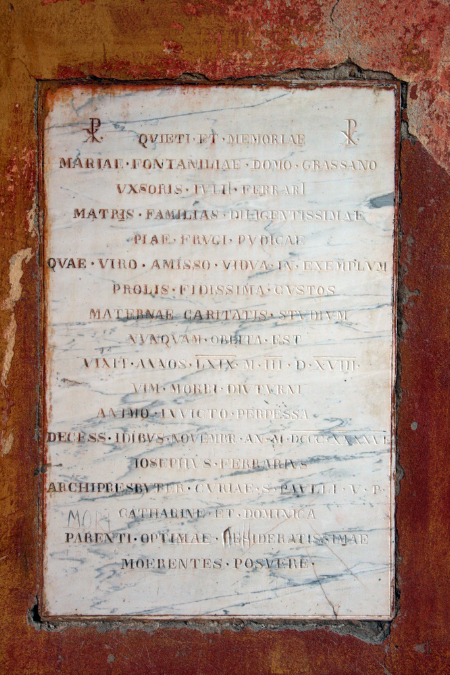 ☧ QVIETI · ET · MEMORIAE ☧
MARIAE · FONTANILIAE · DOMO · GRASSANO
VXSORIS · IVLII · FERRARI
MATRIS · FAMILIAS · DILIGENTISSIMAE
PIAE · FRVGI · PVDICAE
QVAE · VIRO · AMISSO · VIDVA · IN · EXEMPLVM
PROLIS · FIDISSIMA · CVSTOS
MATERNAE CARITATIS · STVDIVM
NVNQVAM · OBLITA · EST
VIXIT · ANNOS · LXIX · M · III · D · XVIII ·
VIM · MORBI · DIVTVRNI
ANIMO · INVICTO · PERPESSA
DECESS · IDIBVS · NOVEMBR · AN · M · DCCC ·
IOSEPHVS · FERRARIVS
ARCHIPRESBYTER · CVRIAE · S · PAVLLI · V · D ·
CATHARINE · ET · DOMINICA
PARENTI · OPTIMAE · DESIDERATISSIMAE
MOERENTES · POSVERE ·
MORI